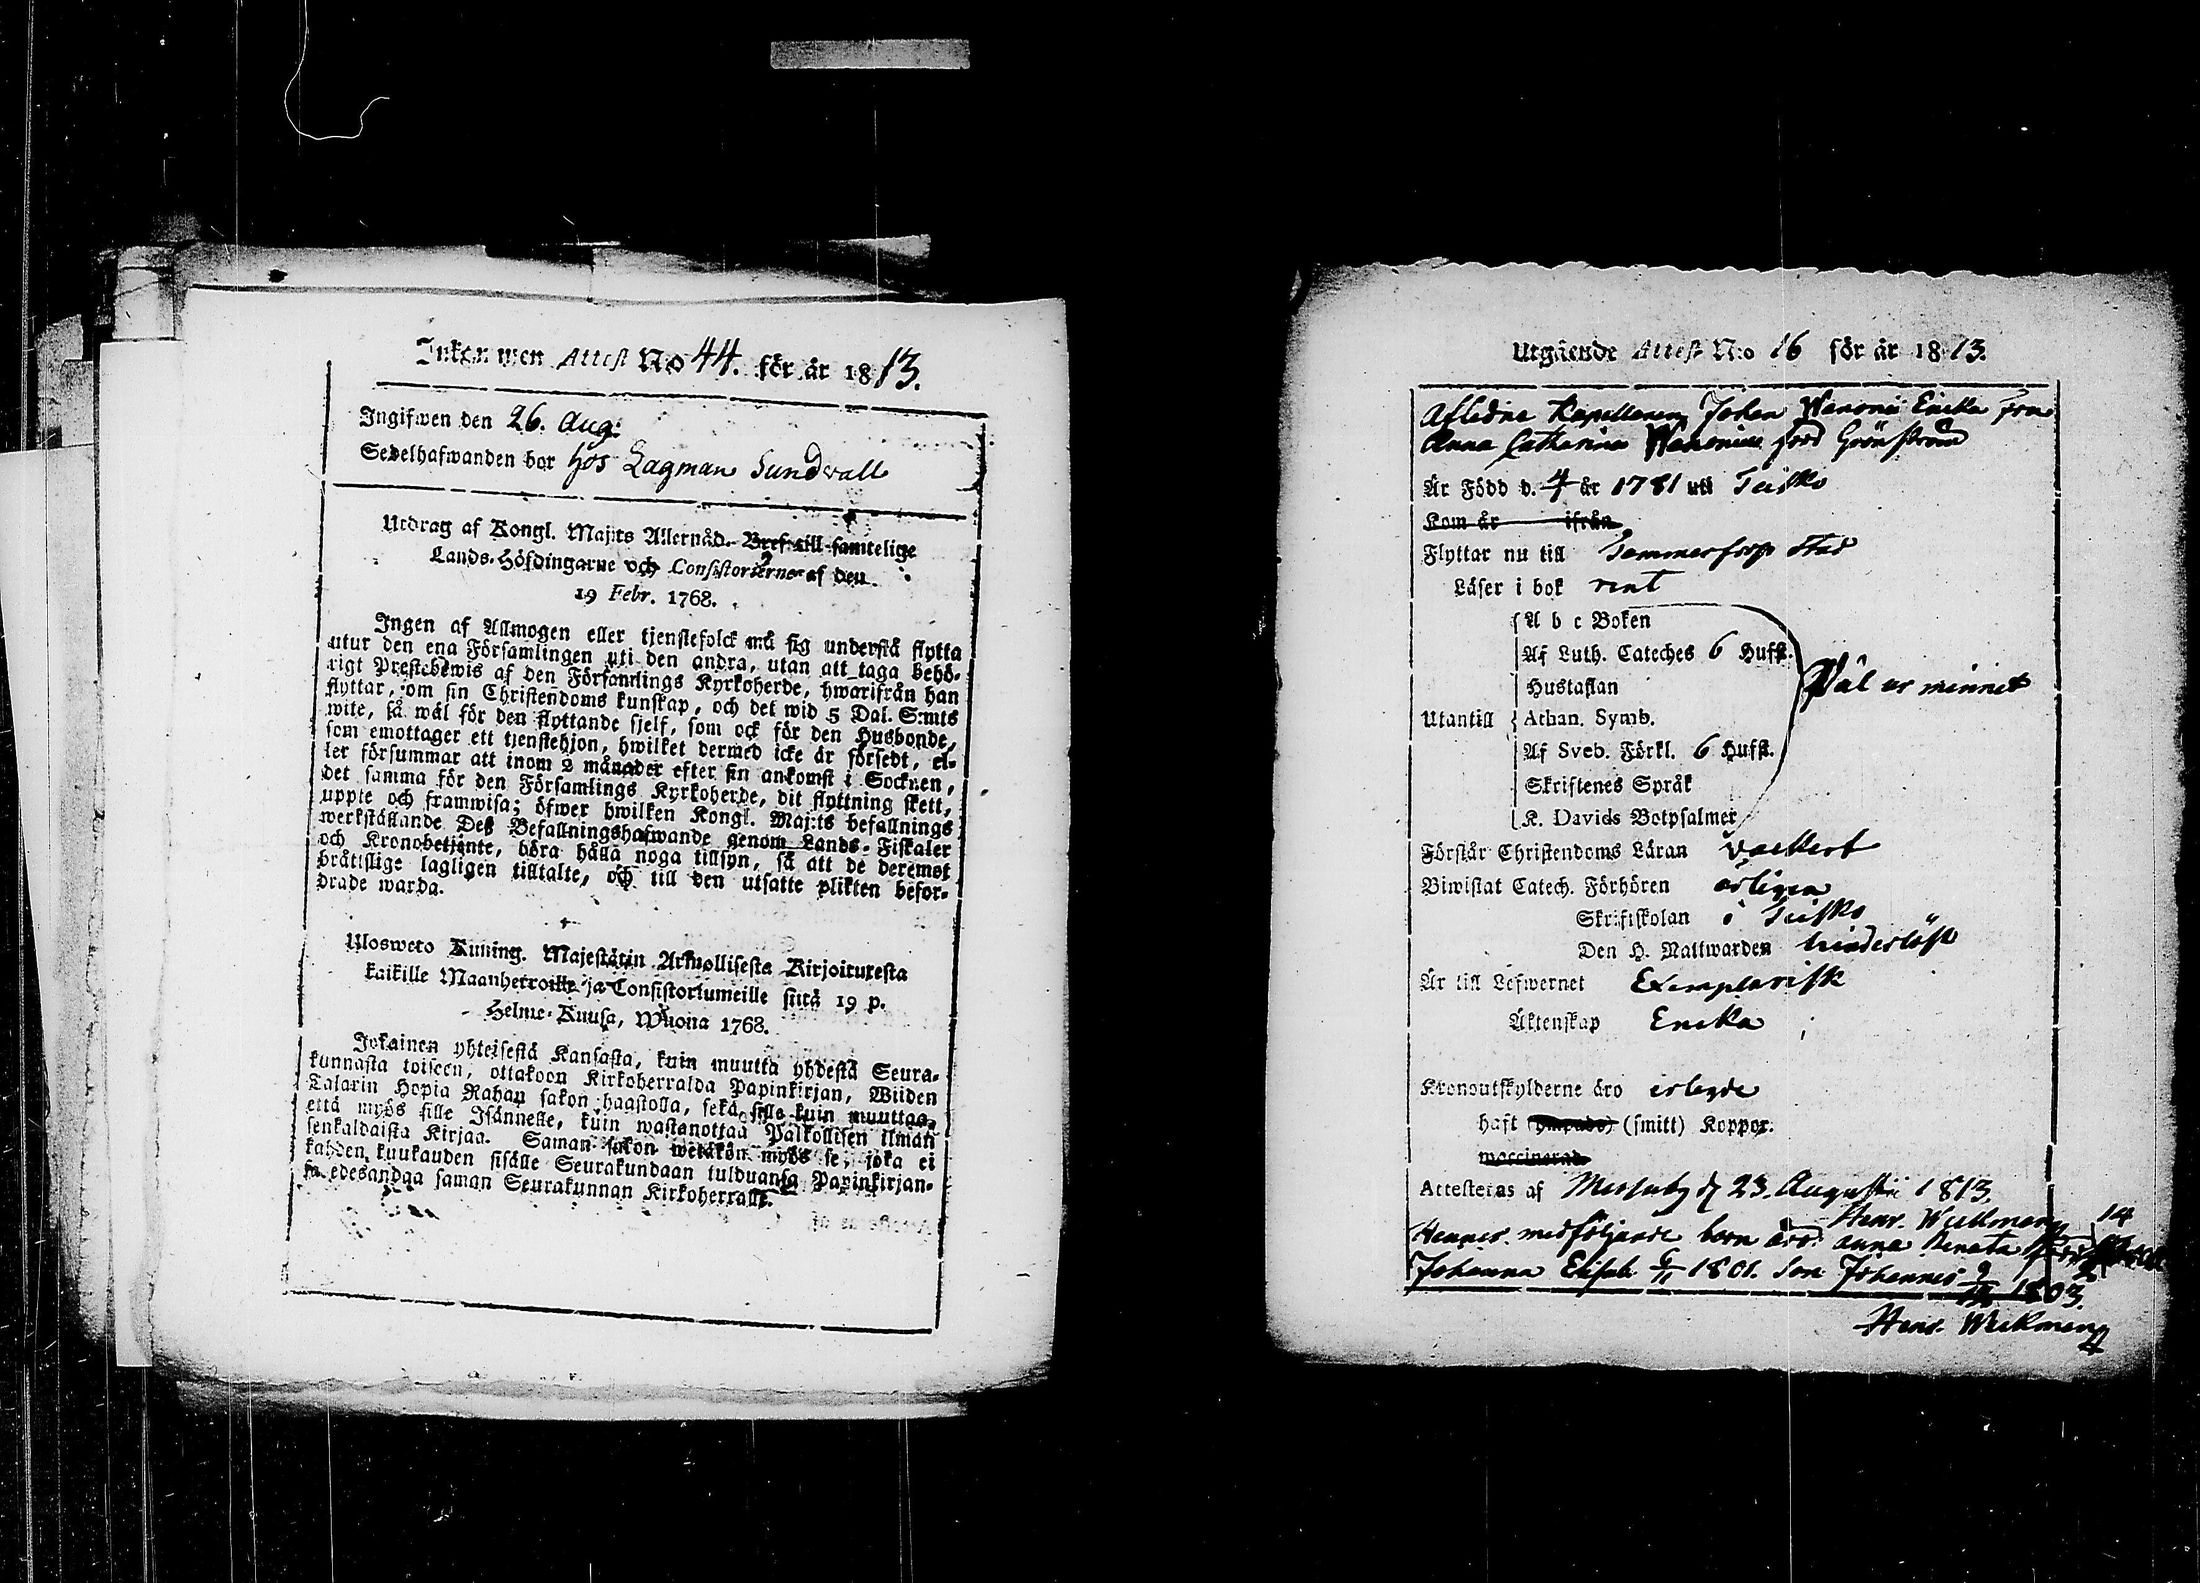 Inkommen Attest No 44. för år 1813.
Ingifwen den 26. Aug:
Sedelhafwanden bor hos Lagman Sundwall
Utdrag af Kongl. Maj:ts Allernåd. Bref till samtelige
Lands-Höfdingarne och Consistorierne af den
19 Febr. 1768.
Ingen af Allmogen eller tjenstefolck må sig understå flytta
utur den ena Församlingen uti den andra, utan att taga behö-
rigt Prestebewis af den Församlings Kyrkoherde, hwarifrån han
flyttar, om sin Christendoms kunskap, och det wid 5 Dal. S:mts
wite, så wäl för den flyttande sjelf, som ock för den Husbonde,
som emottager ett tjenstehjon, hwilket dermed icke är försedt, el-
ler försummar att inom 2 månader efter sin ankomst i Socknen,
det samma för den Församlings Kyrkoherde, dit flyttning skett,
uppte och framwisa; öfwer hwilken Kongl. Maj:ts befallnings
werkställande Deß Befallningshafwande genom Lands-Fiskaler
och Kronobetjente, böra hålla noga tillsyn, så att de deremot
brättslige lagligen tilltalte, och till den utsatte plikten befor-
drade warda.
Ulosweto Kuning. Majestätin Armollisesta Kirjoituxesta
kaikille Maanherroille ja Consistoriumeille siitä 19 p.
Helme-Kuusa, Wuona 1768.
Jokainen yhteisestä Kansasta, kuin muutta yhdestä Seura-
kunnasta toiseen, ottakoon Kirkoherralda Papinkirjan, Wiiden
Talarin Hopia Rahan sakon haastolla, sekä sille kuin muuttaa,
että myös sille Isännelle, kuin wastanottaa Palkollisen ilman
senkaldaista Kirjaa. Saman sakon wetäkön myös se, joka ei
kahden kuukauden sisälle Seurakundaan tulduansa Papinkirjan-
sa edesandaa saman Seurakunnan Kirkoherralle.
Utgående Attest N:o 16 för år 1813.
Afledne Kapellanen Johan Wanonii Encka Fru
Anna Catharina Wanonius född Grönström
Är Född d. 4 år 1781 uti Teisko
Kom år ifrån
Flyttar nu till Tammerfors Stad
Läser i bok rent
A b c Boken
Af Luth. Cateches 6 Hufst.
Hustaflan
Utantill Athan. Symb.
Af Sveb. Förkl. 6 Hufst.
Skriftenes Språk
K. Davids Botpsalmer
Wäl ur minnet
Förstår Christendoms Läran vackert
Biwistat Catech. Förhören årligen
Skriftskolan i Teisko
Den H. Nattwarden hinderlöst
Är till Lefwernet Exemplarisk
Äktenskap Encka
Kronoutskylderne äro erlagde
haft (ympade) (smitt) Koppor.
vaccinerad
Attesteras af Messuby d 23 Augustii 1813.
Henr. Weckman
Hennes medföljande barn äro: Anna Renata 14
Johanna Elisab. 6/11 1801. Son Johannes 9 1803.
Henr. Weckman